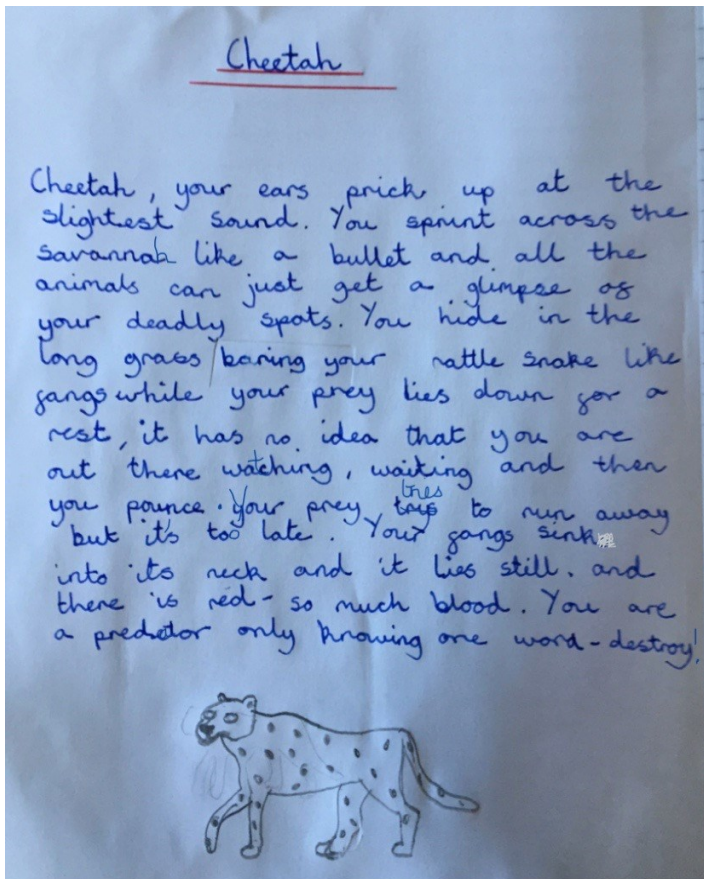 Cheetah
Cheetah, your ears prick up at the
slightest sound. You sprint across the
savannah like a bullet and all the
animals can just get a glimpse of
your deadly spots. You hide in the
long grass baring your rattle snake like
fangs while your prey lies down for a
rest, it has no idea that you are
out there watching, waiting and then
you pounce. Your prey tries to run away
but it's too late. Your fangs sink
into its neck and it lies still. and
there is red - so much blood. You are
a predator only knowing one word - destroy!